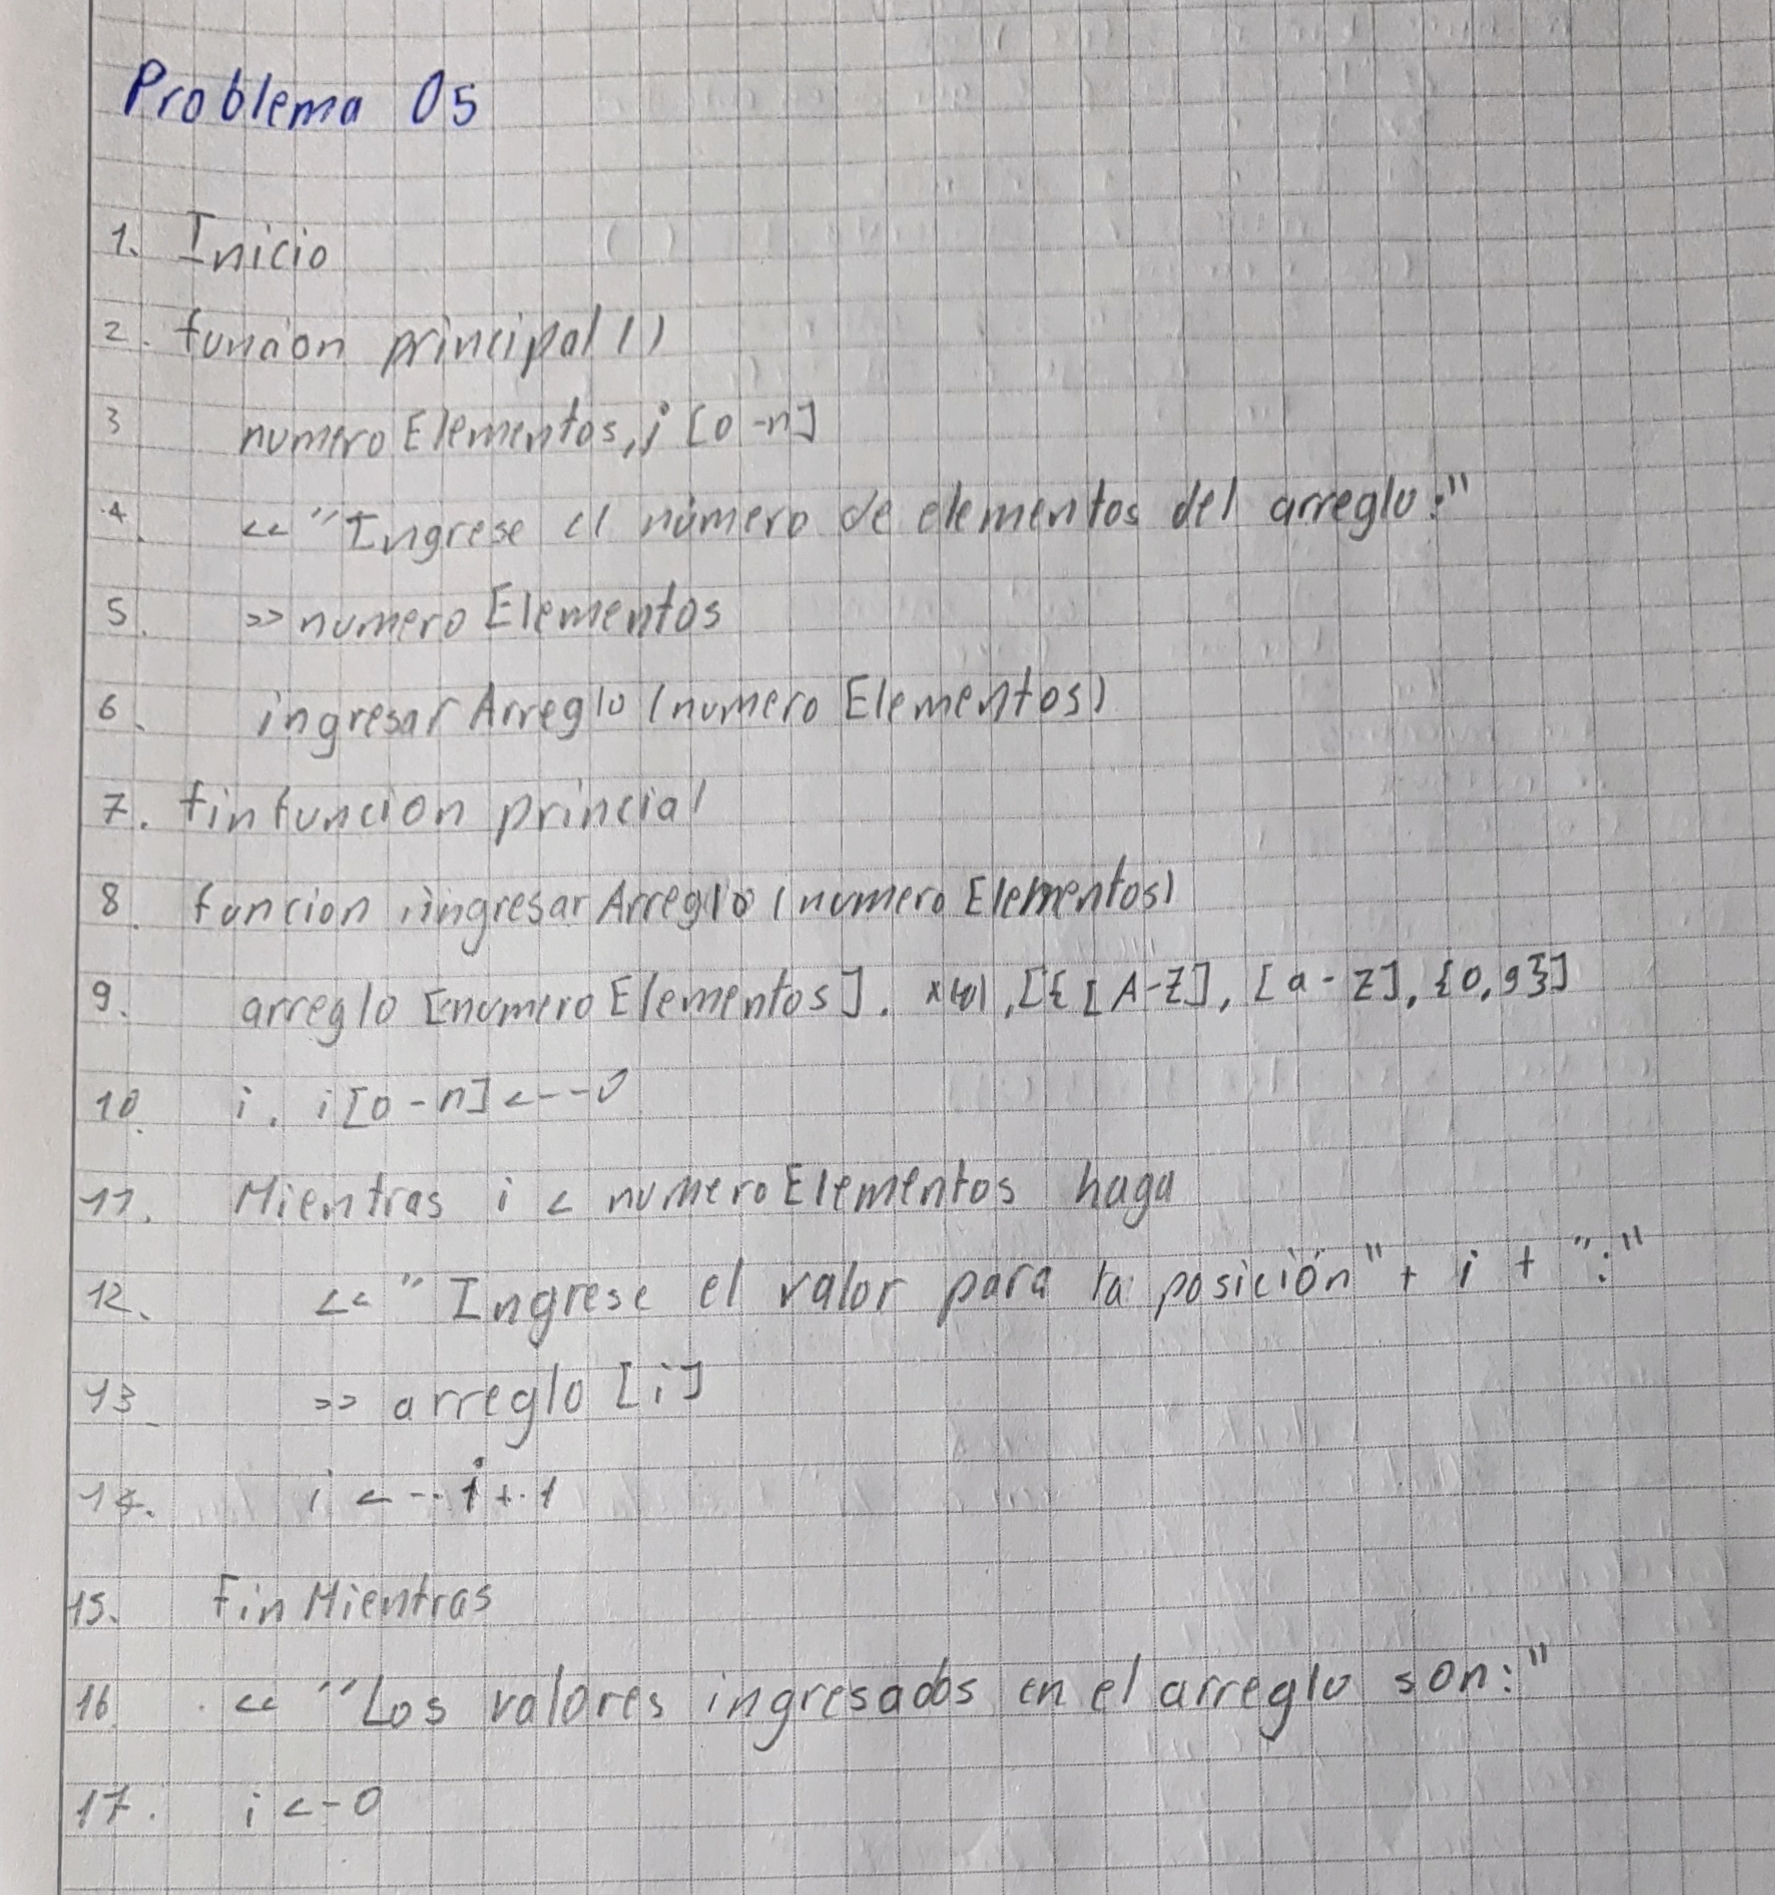 Problema 05
1. Inicio
2. funcion principal ()
3 numero Elementos, i [0-n]
4. << "Ingrese el número de elementos del arreglo:"
5. >> numero Elementos
6. ingresar Arreglo (numero Elementos)
7. finfuncion princial
8. funcion ingresar Arreglo (numero Elementos)
9. arreglo [numero Elementos]. [{[A-Z], [a-z], {0,9}]
10. i, i[0-n] <--0
11. Mientras i < numero Elementos haga
12. << "Ingrese el valor para la posición" + i + ":"
13 >> arreglo [i]
14. i <-- i + 1
15. Fin Mientras
16 << "Los valores ingresados en el arreglo son:"
17. i <- 0